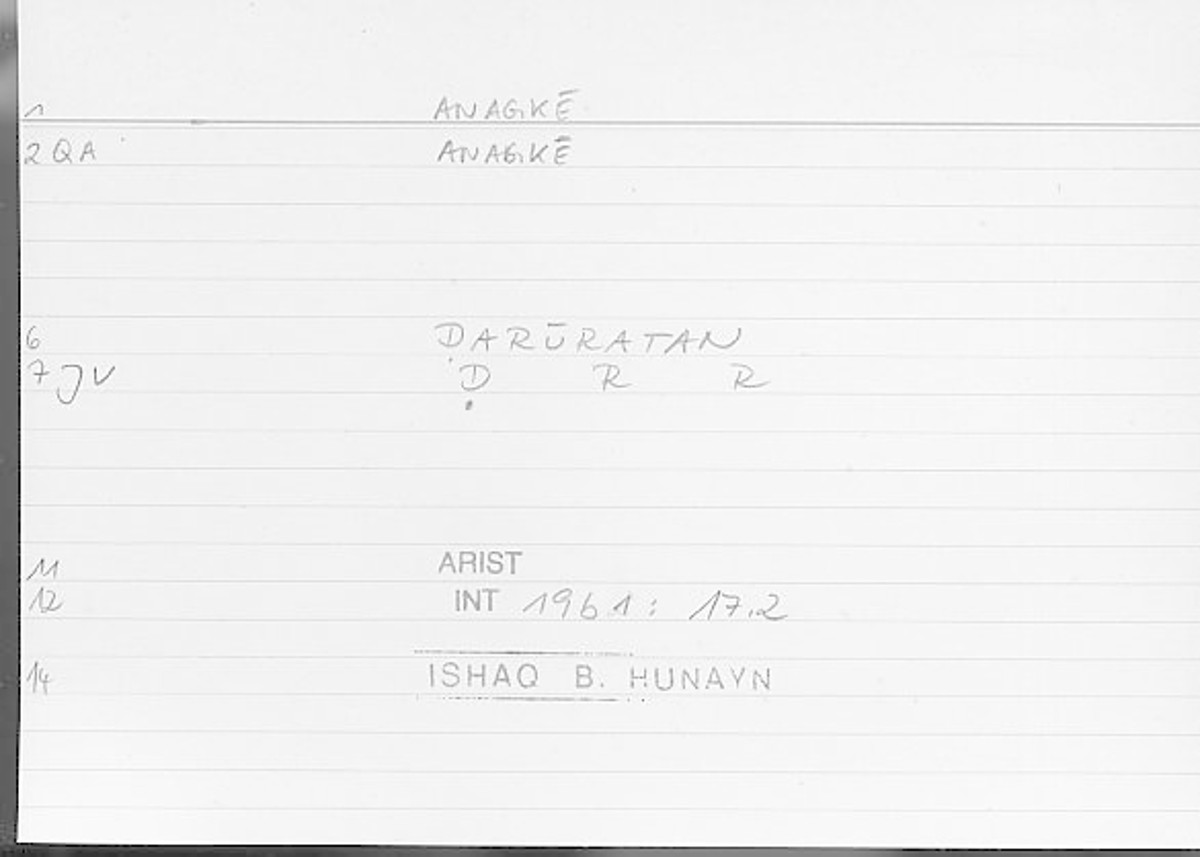 1 ANAGKĒ
2 QA ANAGKĒ
6 ḌARŪRATAN
7 JV Ḍ R R
11 ARIST
12 INT 1961: 17.2
14 ISHAQ B. HUNAYN